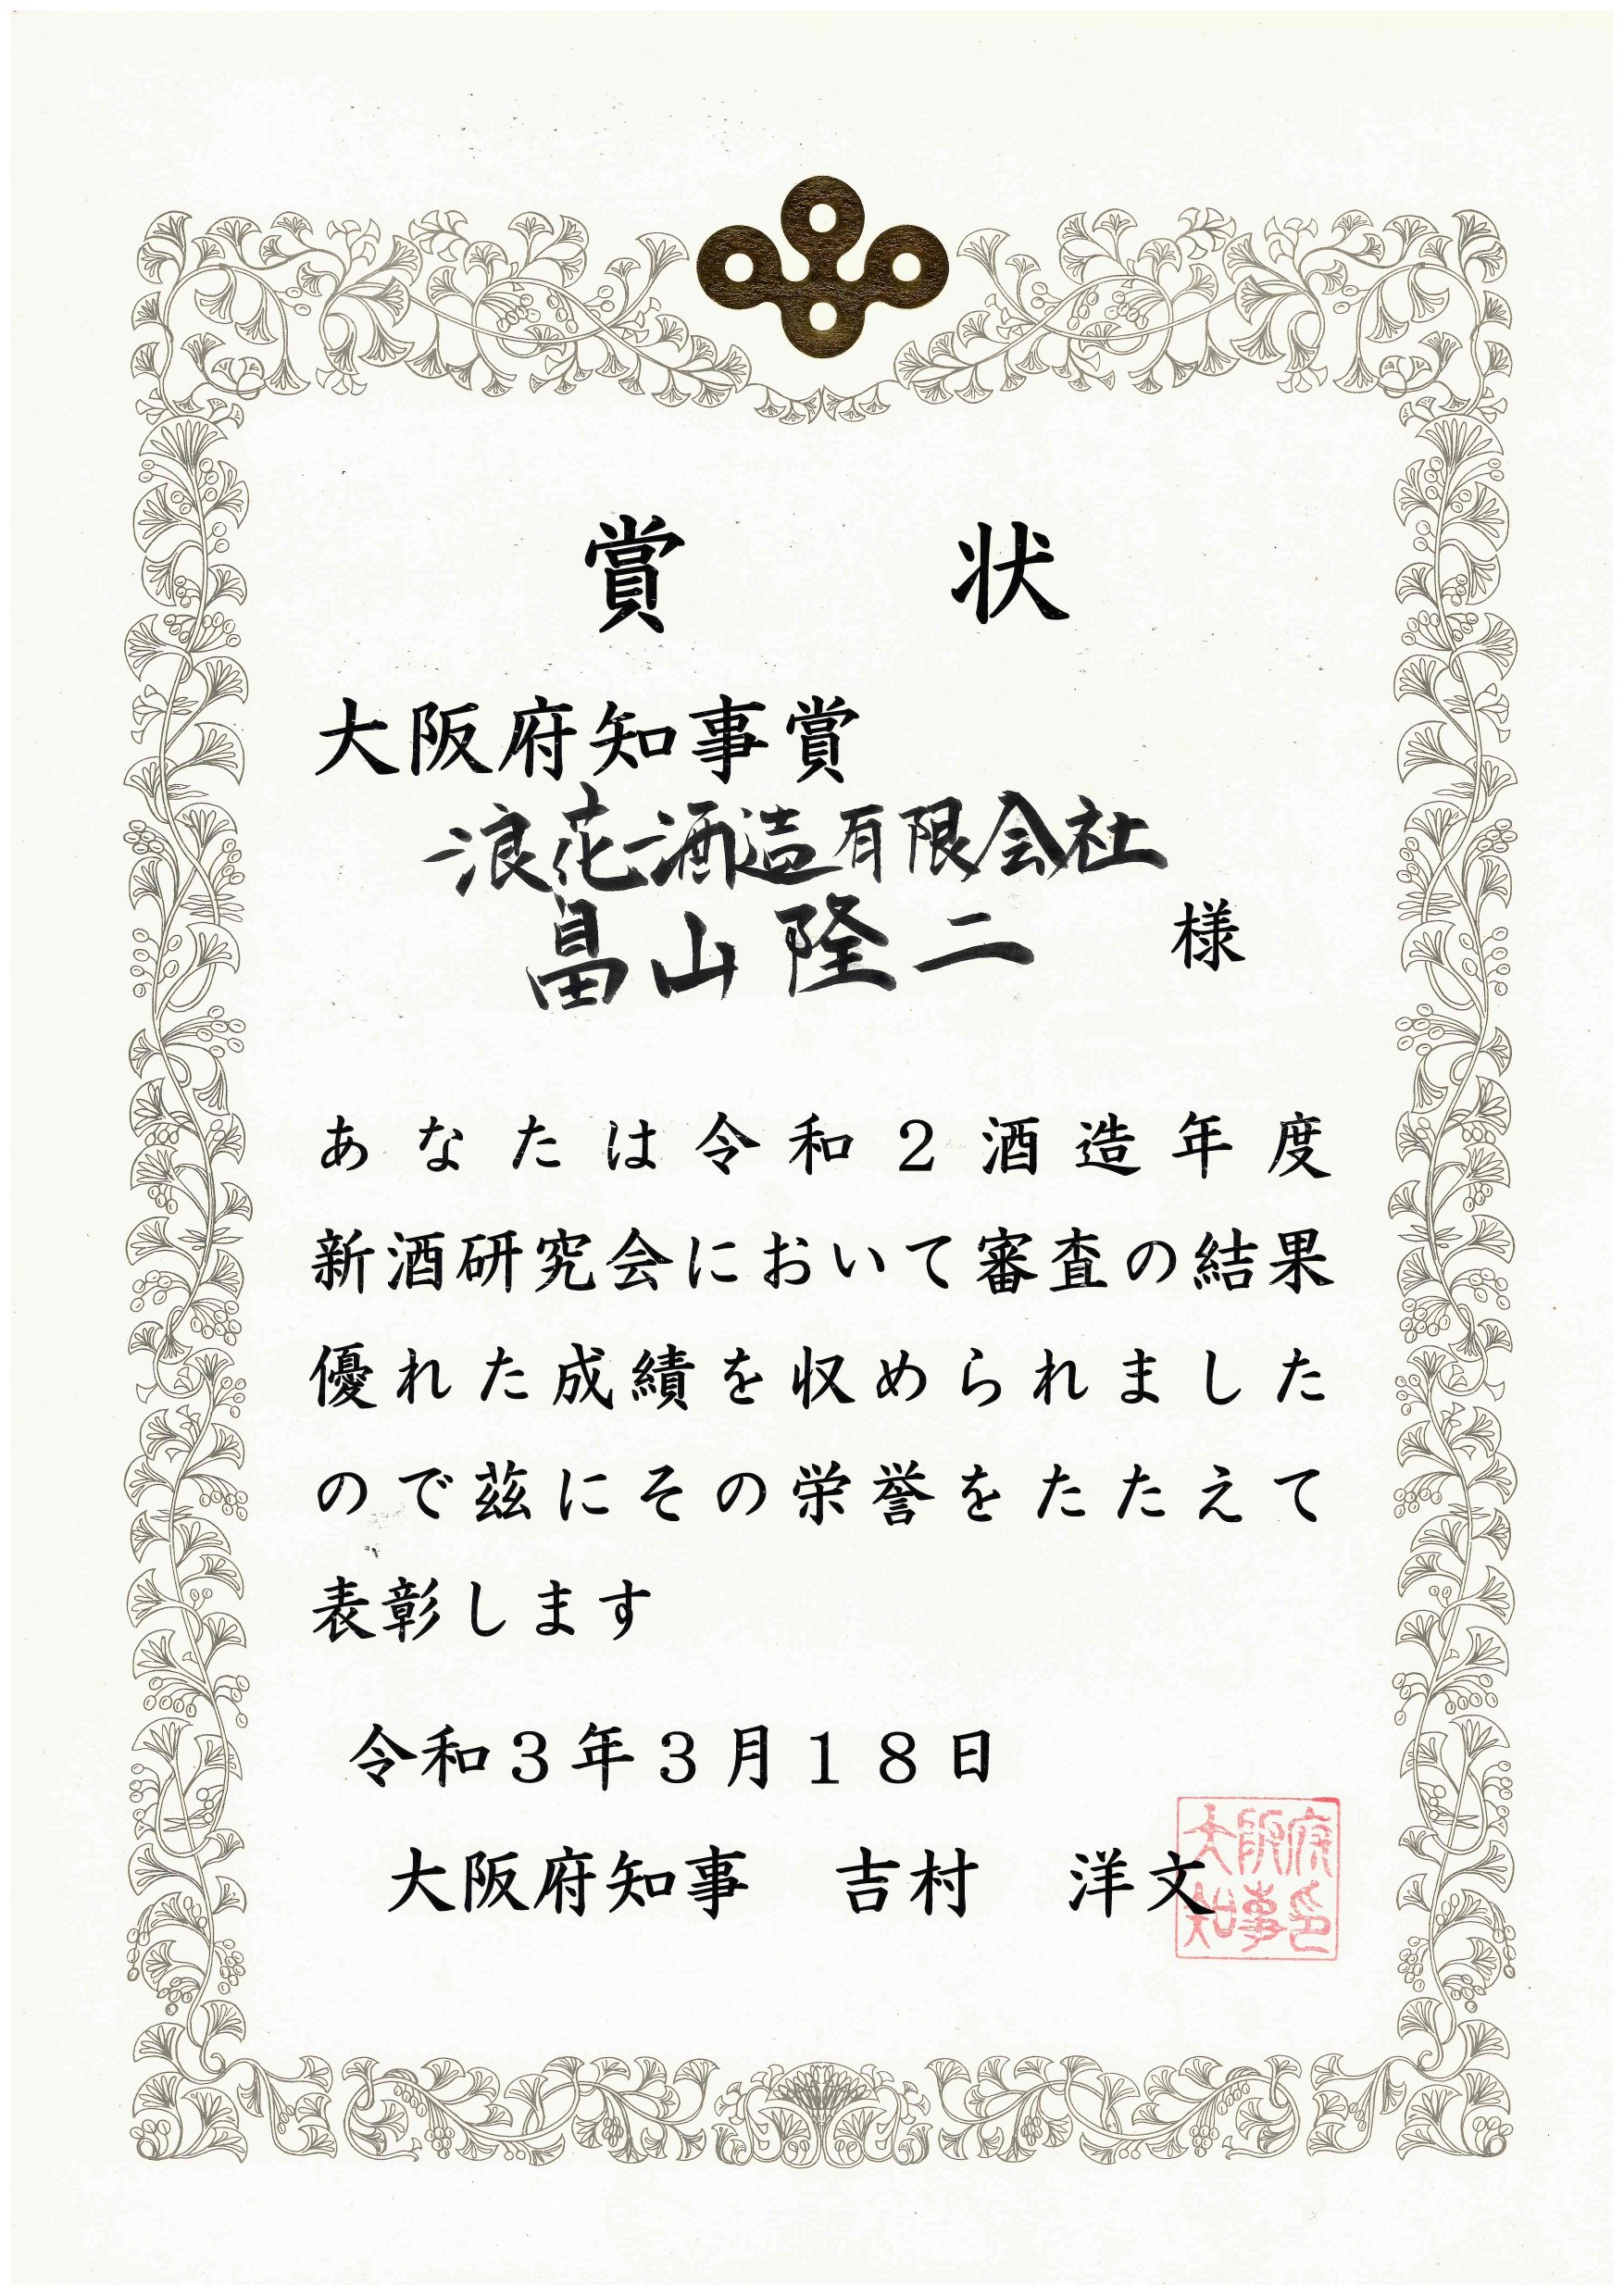 賞 状
大阪府知事賞
浪花酒造有限会社
畠山隆二 様
あなたは令和2酒造年度
新酒研究会において審査の結果
優れた成績を収められました
ので茲にその栄誉をたたえて
表彰します
令和3年3月18日
大阪府知事 吉村 洋文
大阪府
知事印